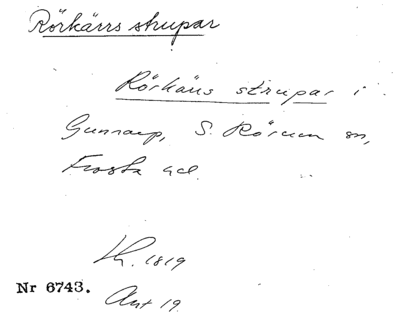 Rörkärrs strupar
Rörkärrs strupar i
Gunnarp, S. Rörum sn,
Frosta hd.
Lh. 1819
Nr 6743.
Akt 19.